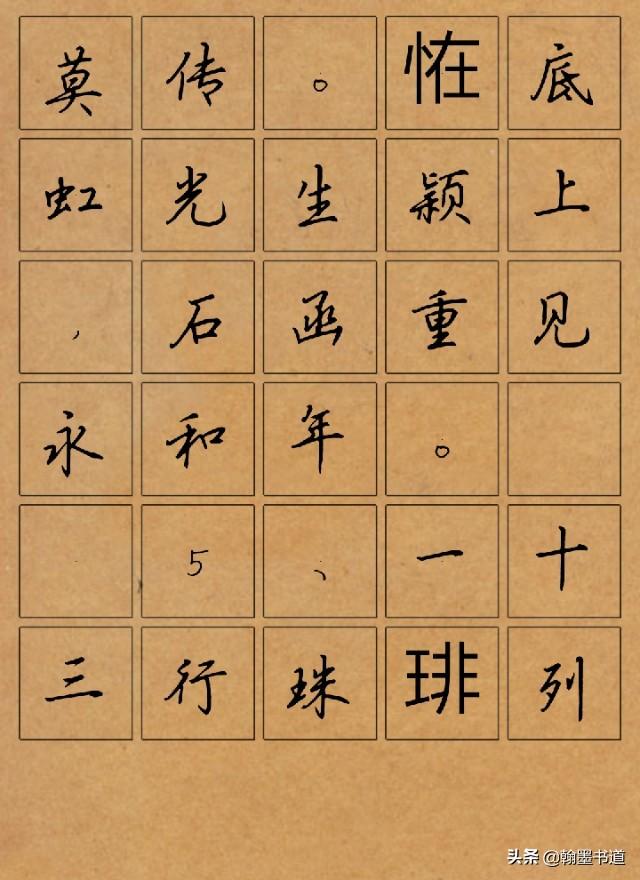 莫传。恠底
虹光生颖上
，石函重见
永和年。
5、一十
三行珠琲列
头条 @翰墨书道